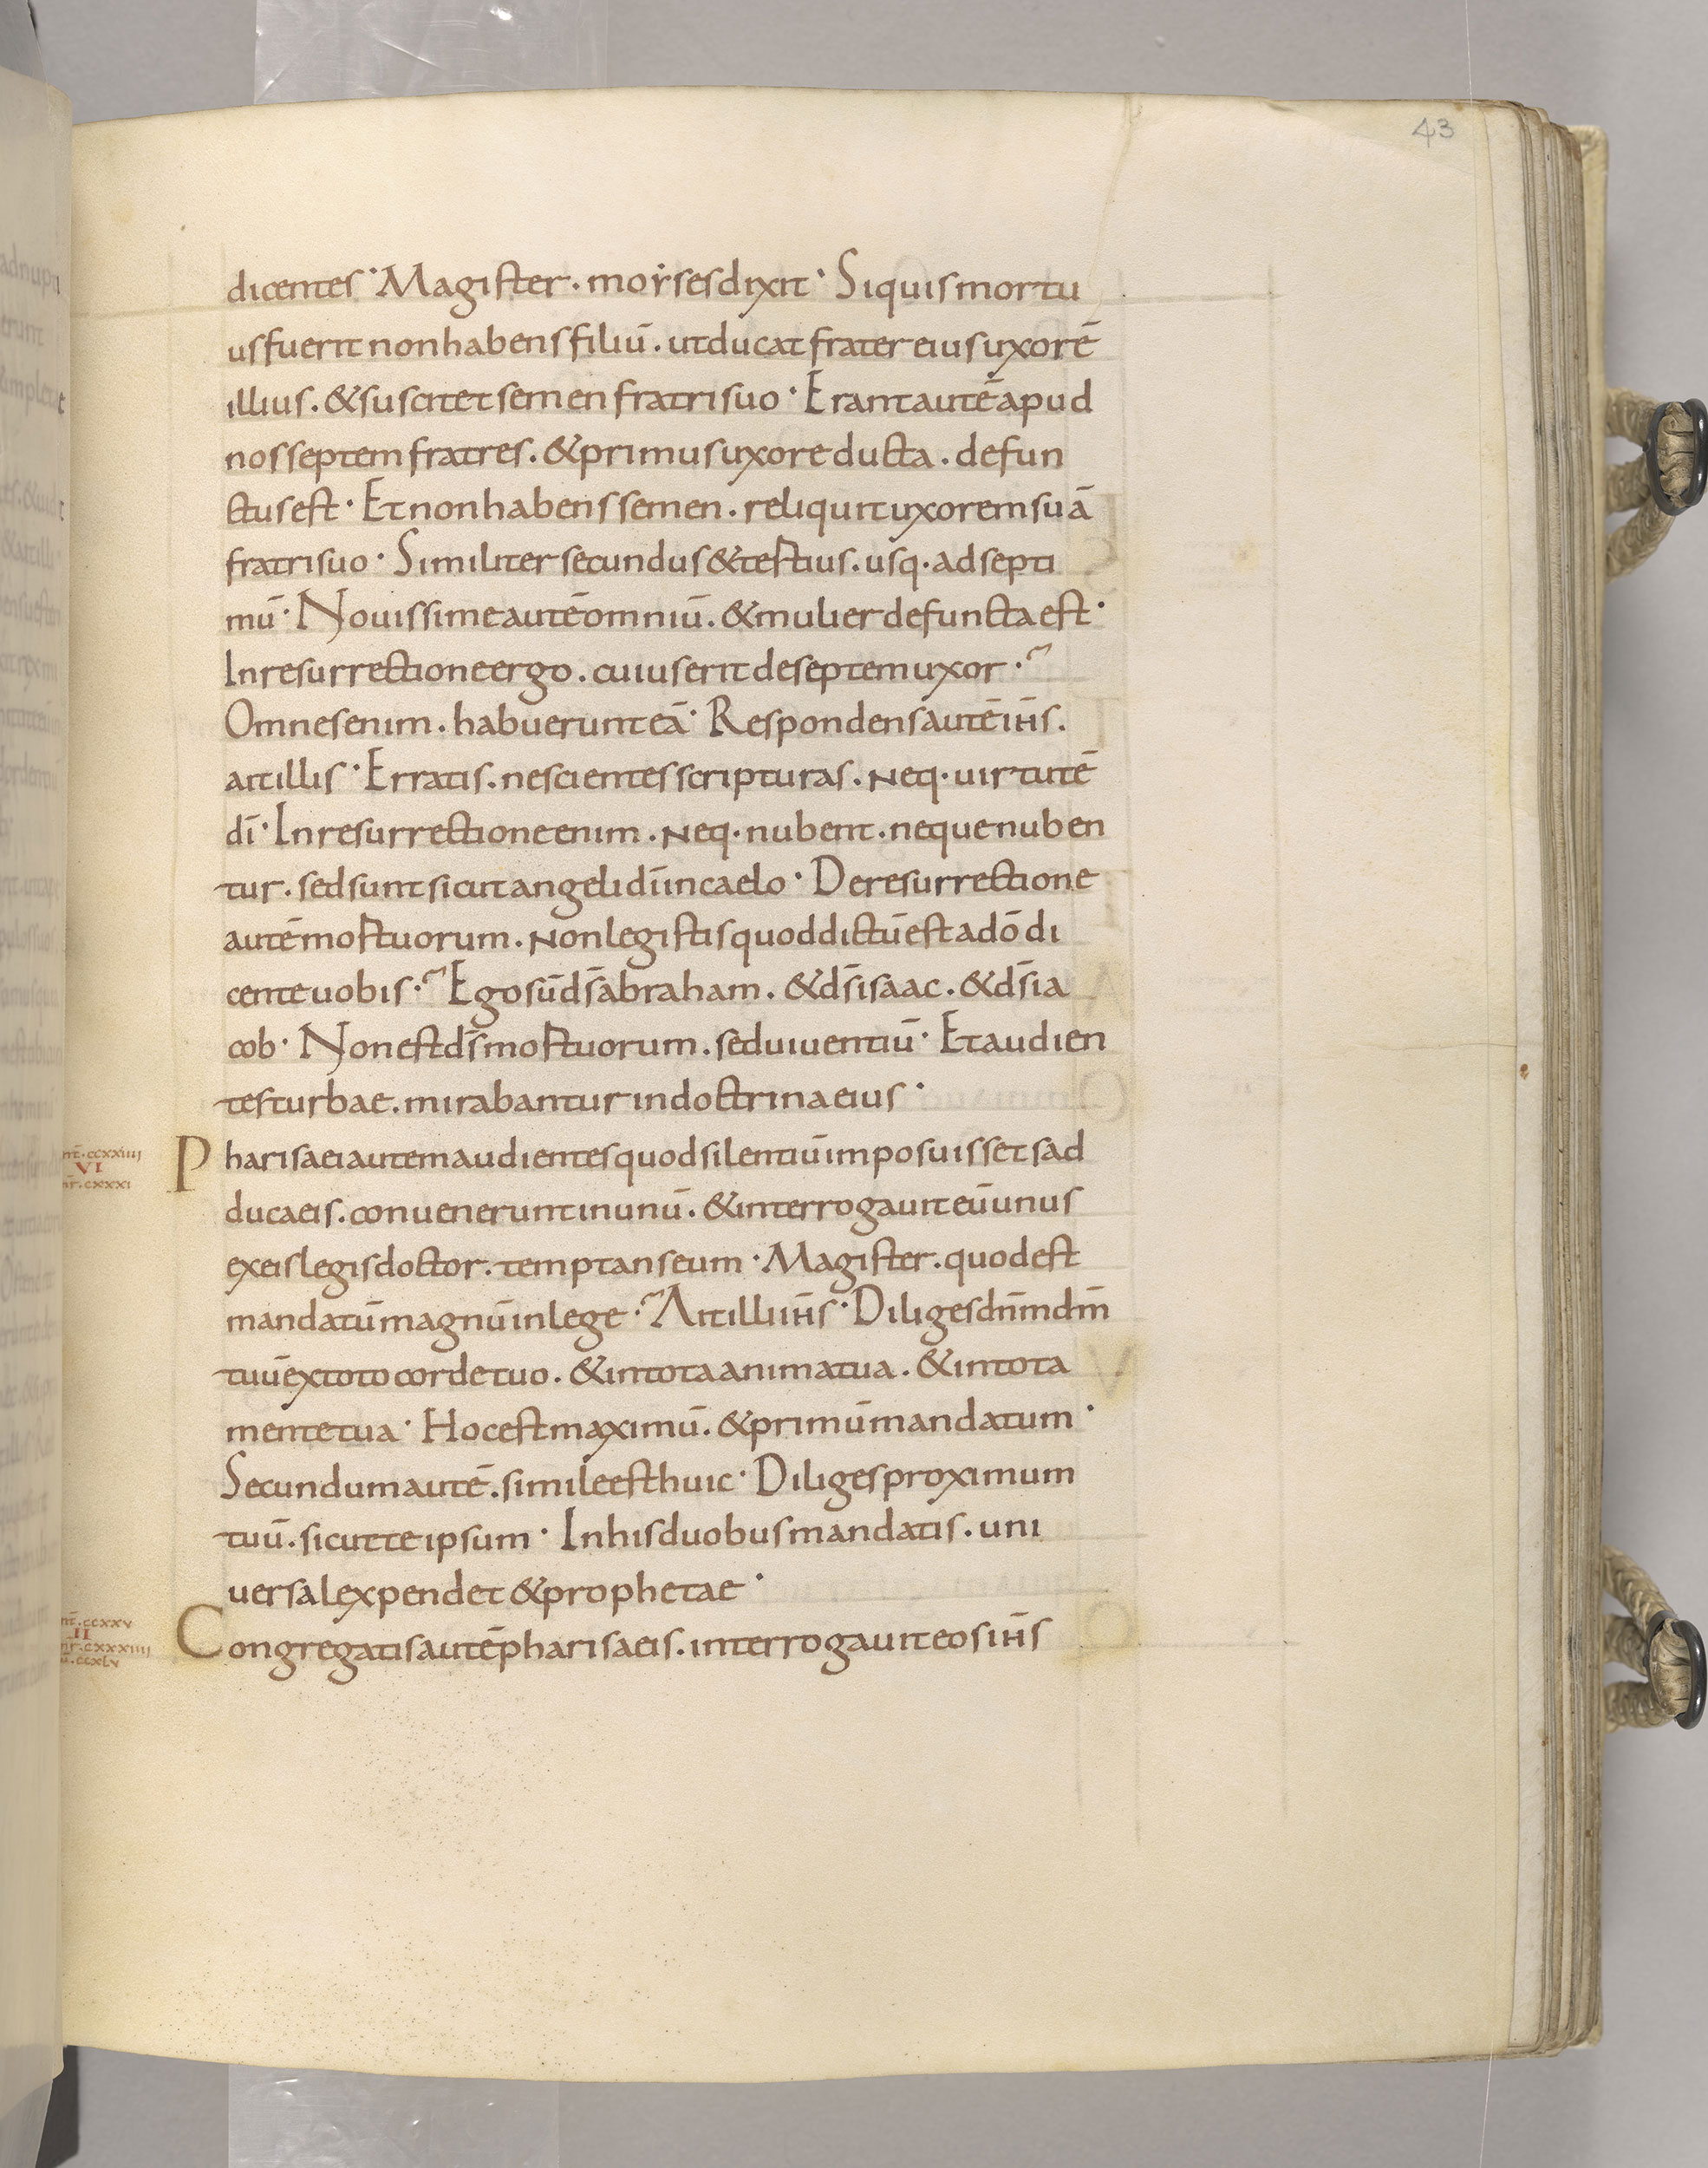 43
dicentes · Magister · moẏses dixit · Si quis mortu
us fuerit non habens filiū · ut ducat frater eius uxorē
illius · & suscitet semen fratri suo · Erant autē apud
nos septem fratres · & primus uxore ducta · defun
ctus est · Et non habens semen · reliquit uxorem suā
fratri suo · Similiter secundus & tertius · usq· ad septi
mū · Novissime autē omniū · & mulier defuncta est ·
In resurrectione ergo · cuius erit de septem uxor ·~
Omnes enim · habuerunt eā · Respondens autē ih̄s ·
ait illis · Erratis · nescientes scripturas · neq· uirtutē
dī · In resurrectione enim · neq· nubent · neque nuben
tur · sed sunt sicut angeli dī in caelo · De resurrectione
autē mortuorum · non legistis quod dictū est a dō di
cente uobis ·~ Ego sū ds̄ abraham · & ds̄ isaac · & ds̄ ia
cob · Non est ds̄ mortuorum · sed uiuentiū · Et audien
tes turbae · mirabantur in doctrina eius ·
Pharisaei autem audientes quod silentiū imposuisset sad
mt̄·ccxxiiii
VI
mr̄·cxxxi
ducaeis · conuenerunt in unū · & interrogauit eū unus
ex eis legis doctor · temptans eum · Magister · quod est
mandatū magnū in lege ·~ Ait illi ih̄s · Diliges dn̄m dm̄
tuū ex toto corde tuo · & in tota anima tua · & in tota
mente tua · Hoc est maximū · & primū mandatum ·
Secundum autē · simile est huic · Diliges proximum
tuū · sicut te ipsum · In his duobus mandatis · uni
uersa lex pendet & prophetae ·
Congregatis autē pharisaeis · interrogauit eos ih̄s
mt̄·ccxxv
II
mr̄·cxxxiiii
ccxlv